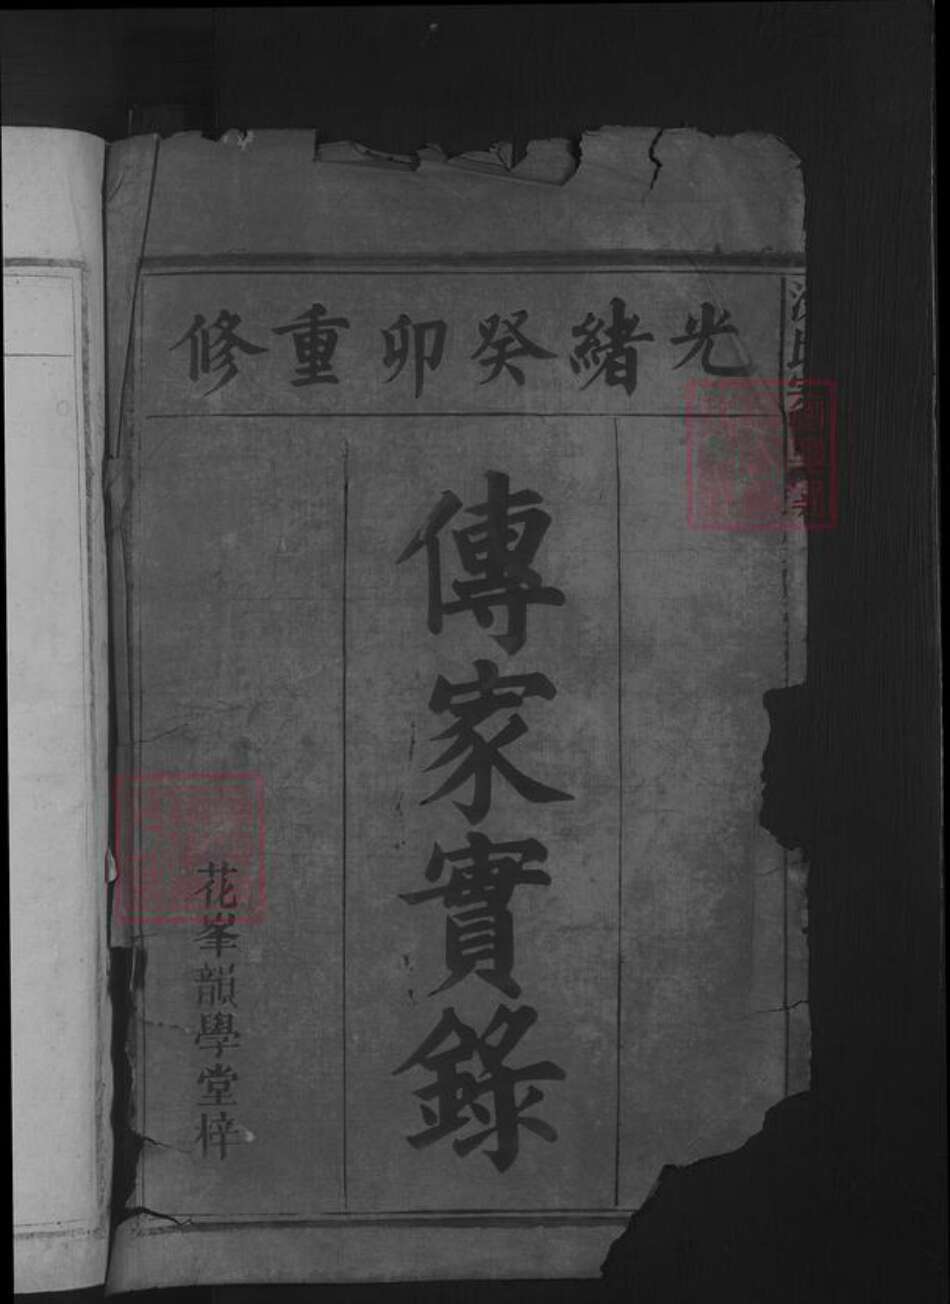 光緒癸卯重修
傳家實錄
花峯韻學堂梓